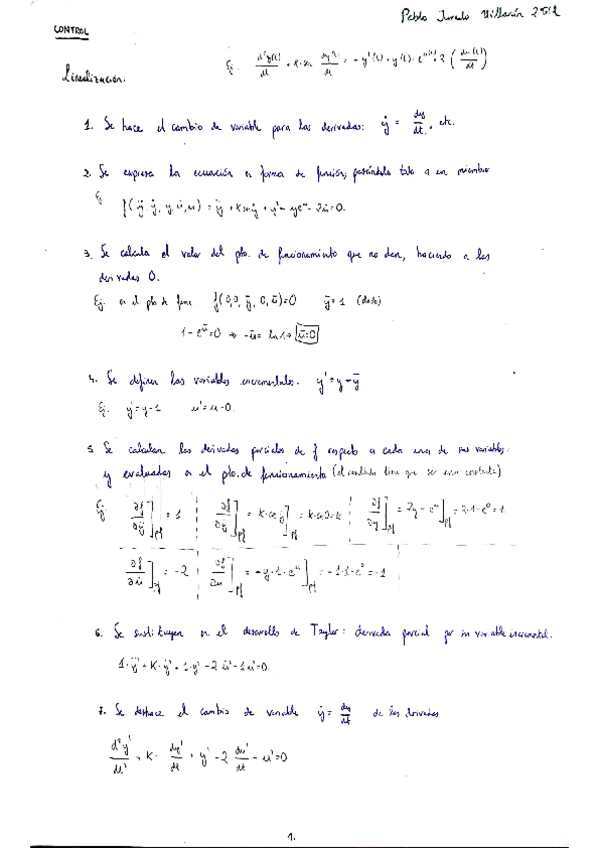 Pablo Jurado Villarín 2º512
CONTROL
Ej. d²y(t)/dt + K·sen dy(t)/dt = - y²(t) + y(t)·e^u(t) + 2 (du(t)/dt)
Linealización:
1. Se hace el cambio de variable para las derivadas: ẏ = dy/dt, etc.
2. Se expresa la ecuación en forma de función, pasándolo todo a un miembro
Ej f(ÿ, ẏ, y, u̇, u) = ÿ + K sen ẏ + y² - ye^u - 2u̇ = 0.
3. Se calcula el valor del pto. de funcionamiento que no dan, haciendo a las
derivadas 0.
Ej. en el pto de func f(0,0, ȳ, 0, ū)=0 ȳ=1 (dato)
1 - e^ū = 0 → ū = ln 1 → ū=0
4. Se definen las variables incrementales. y' = y - ȳ
Ej. y' = y-1 u' = u-0.
5. Se calculan las derivadas parciales de f respecto a cada una de sus variables
y evaluadas en el pto. de funcionamiento (el resultado tiene que ser una constante)
Ej ∂f/∂ÿ]pf = 1 ∂f/∂ẏ]pf = K·cos ẏ]pf = K·cos 0 = K ∂f/∂y]pf = 2y - e^u]pf = 2·1 - e^0 = 1
∂f/∂u̇]pf = -2 ∂f/∂u]pf = -y·1·e^u]pf = -1·1·e^0 = -1
6. Se sustituyen en el desarrollo de Taylor: derivada parcial por su variable incremental.
1·ÿ' + K·ẏ' + 1·y' - 2u̇' - 1u' = 0.
7. Se deshace el cambio de variable ẏ = dy/dt de las derivadas
d²y'/dt² + K· dy'/dt + y' - 2 du'/dt - u' = 0
1.